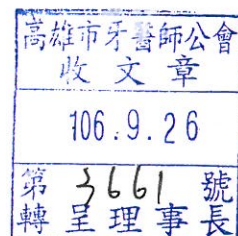 高雄市牙醫師公會
收文章
106.9.26
第3661號
轉呈理事長